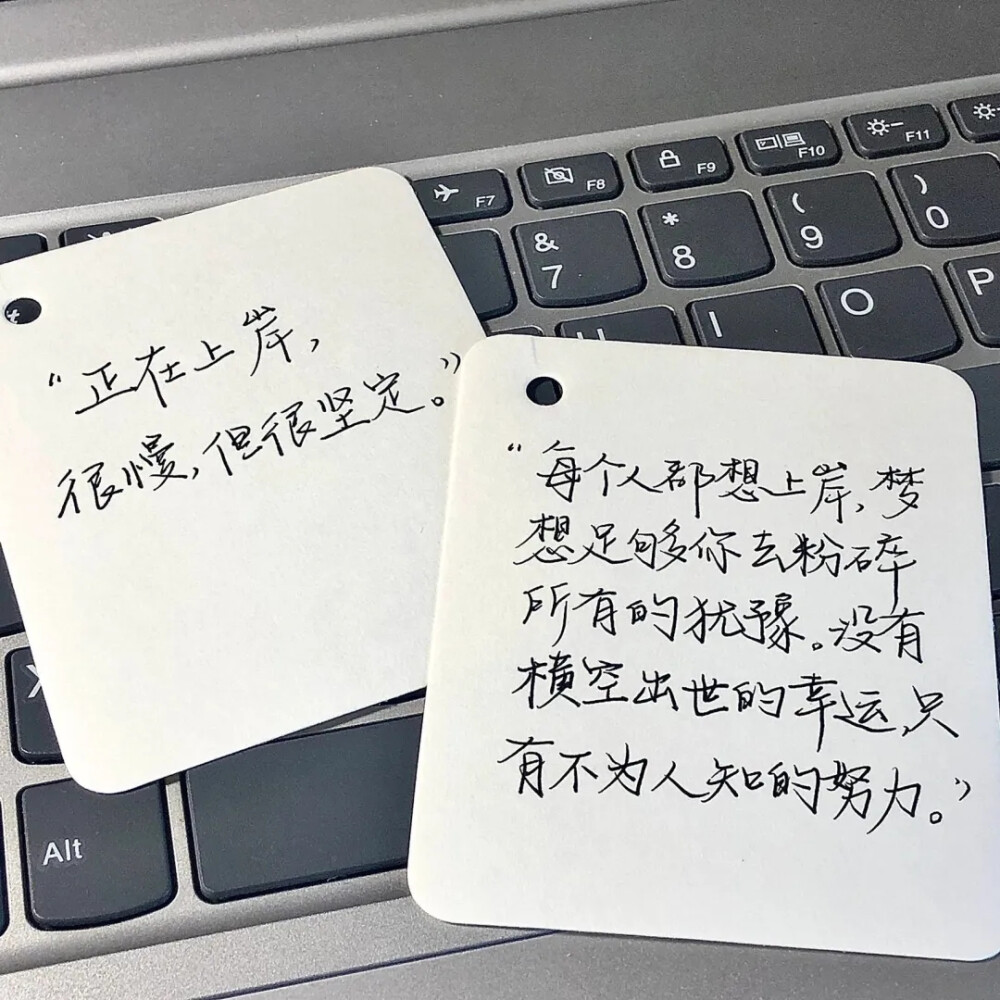 “正在上岸,
很慢,但很坚定。”
“每个人都想上岸,梦
想足够你去粉碎
所有的犹豫。没有
横空出世的幸运,只
有不为人知的努力。”
F7
F8
F9
F10
F11
&
7
*
8
(
9
)
0
U
I
O
P
X
Alt